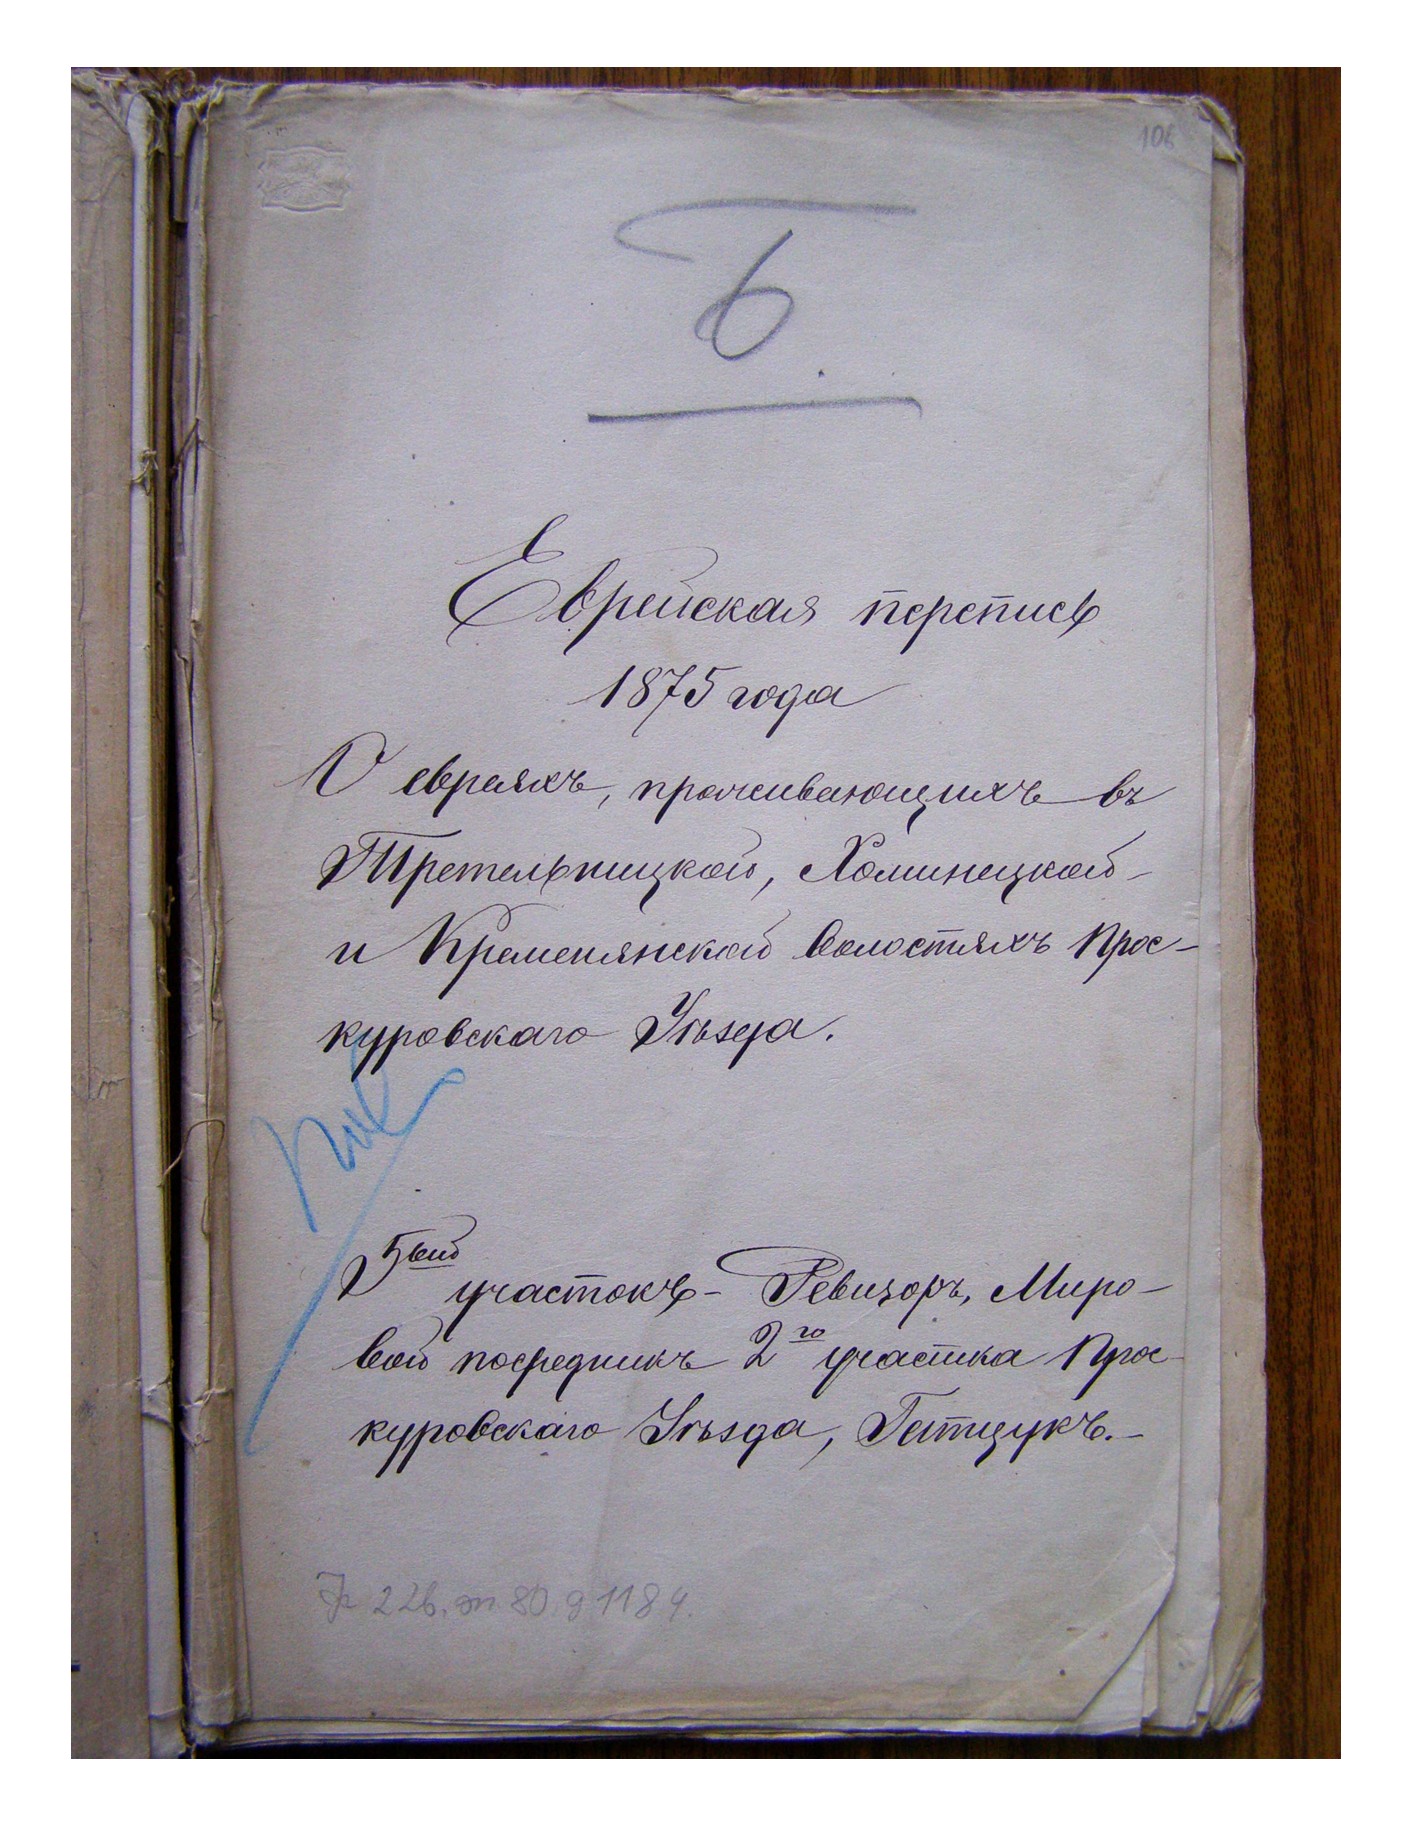 106
Б.
Еврейская перепись
1875 года
О евреяхъ, проживающихъ въ
Третельницкой, Хоминецкой
и Кременянской волостяхъ Прос-
куровскаго Уѣзда.
5ый участокъ - Ревизоръ, Миро-
вой посредникъ 2го участка Прос-
куровскаго Уѣзда, Гатцукъ. -
226, оп 80 д 1184.